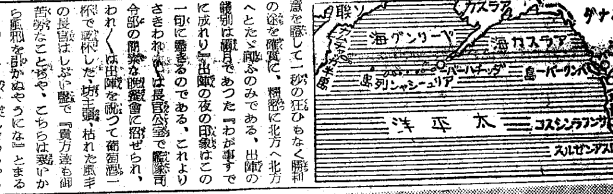 意を賭して一秒の狂ひもなく勝利
の途を確實に、精密に北方へ北方
へとたゞ向ふのみである、出陣の
餞別は満月であつた『わが事すで
に成れり』出陣の夜の印象はこの
一句に盡きるのである、これより
さきわれ〳〵は長官公室で艦隊司
令部の簡素な晩餐會に招ぜられ、
われ〳〵は出陣を祝つて葡萄酒一
杯で乾杯した、坊主頭、枯れた風手
の長官はしぶい聲で『貴方達も御
苦労なことぢや、こちらは寒いか
ら風邪を引かぬやうにな』とまる
ソ聯
アラスカ
カナダ
海グンリーベ
海カスラア
島列ンヤシーュリア
バーハチツダ
島ーバンリパ
洋平太
コスシンラフンサ
スルゼンアスロ